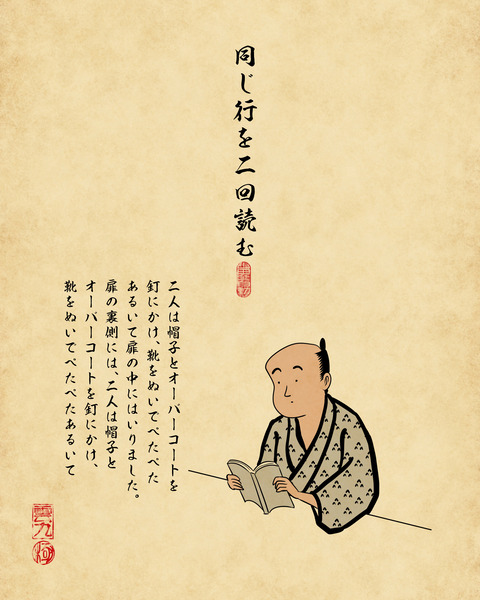 同じ行を二回読む
二人は帽子とオーバーコートを
釘にかけ、靴をぬいでぺたぺた
あるいて扉の中にはいりました。
扉の裏側には、二人は帽子と
オーバーコートを釘にかけ、
靴をぬいでぺたぺたあるいて